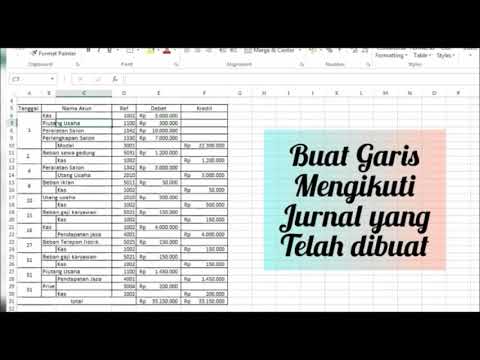 Format Painter Merge & Center Conditional Format as Cell
Formatting Table Styles
Clipboard Font Alignment Number Styles
C7 fx
A B C D E F G H I J K L
Tanggal Nama Akun Ref Debet Kredit
Kas 1001 Rp 5.000.000
Piutang Usaha 1100 Rp 300.000
1 Peralatan Salon 1342 Rp 10.000.000
Perlengkapan Salon 1330 Rp 7.000.000
Modal 3001 Rp 22.300.000
2 Beban sewa gedung 5031 Rp 1.200.000
Kas 1002 Rp 1.200.000
4 Peralatan Salon 1342 Rp 3.000.000
Utang Usaha 2010 Rp 3.000.000
8 Beban Iklan 5011 Rp 50.000
Kas Rp 50.000
10 Utang usaha 2010 Rp 500.000
Kas Rp 500.000
15 Beban gaji karyawan Rp 150.000
Kas Rp 150.000
16 Kas Rp 4.000.000
Pendapatan Jasa 4001 Rp 4.000.000
27 Beban Telepon listrik Rp 150.000
Kas Rp 150.000
31 Beban gaji karyawan 5021 Rp 150.000
Kas Rp 150.000
31 Piutang Usaha 1100 Rp 1.450.000
Pendapatan Jasa 4001 Rp 1.450.000
31 Prive Rp 200.000
Kas Rp 200.000
total Rp 33.150.000 Rp 33.150.000
Buat Garis
Mengikuti
Jurnal yang
Telah dibuat